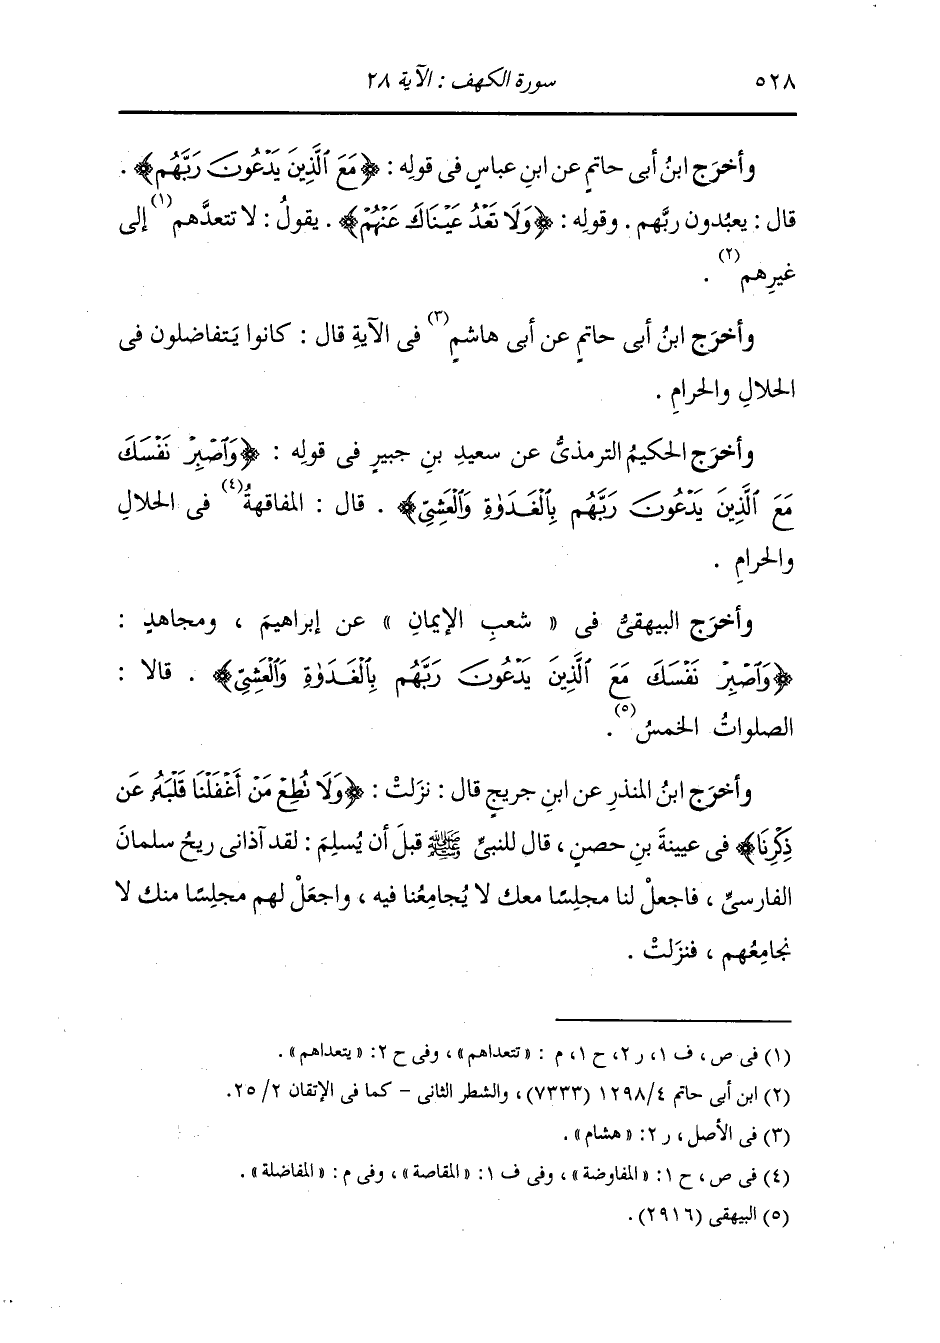 ٥٢٨ سورة الكهف : الآية ٢٨
وأخرَج ابنُ أبى حاتمٍ عن ابنِ عباسٍ فى قولِه : ﴿مَعَ ٱلَّذِينَ يَدْعُونَ رَبَّهُم﴾ .
قال : يعبُدون ربَّهم . وقولِه : ﴿وَلَا تَعْدُ عَيْنَاكَ عَنْهُمْ﴾ . يقولُ : لا تتعدَّهم(١) إلى
غيرِهم(٢) .
وأخرَج ابنُ أبى حاتمٍ عن أبى هاشمٍ(٣) فى الآيةِ قال : كانوا يَتفاضلون فى
الحلالِ والحرامِ .
وأخرَج الحكيمُ الترمذىُّ عن سعيدِ بنِ جبيرٍ فى قولِه : ﴿وَٱصْبِرْ نَفْسَكَ
مَعَ ٱلَّذِينَ يَدْعُونَ رَبَّهُم بِٱلْغَدَوٰةِ وَٱلْعَشِيِّ﴾ . قال : المفاقهةُ(٤) فى الحلالِ
والحرامِ .
وأخرَج البيهقىُّ فى « شعبِ الإيمانِ » عن إبراهيمَ ، ومجاهدٍ :
﴿وَٱصْبِرْ نَفْسَكَ مَعَ ٱلَّذِينَ يَدْعُونَ رَبَّهُم بِٱلْغَدَوٰةِ وَٱلْعَشِيِّ﴾ . قالا :
الصلواتُ الخمسُ(٥) .
وأخرَج ابنُ المنذرِ عن ابنِ جريجٍ قال : نزَلتْ : ﴿وَلَا نُطِعْ مَنْ أَغْفَلْنَا قَلْبَهُۥ عَن
ذِكْرِنَا﴾ فى عيينةَ بنِ حصنٍ ، قال للنبىِّ ﷺ قبلَ أن يُسلِمَ : لقد آذانى ريحُ سلمانَ
الفارسىِّ ، فاجعلْ لنا مجلِسًا معك لا يُجامِعُنا فيه ، واجعَلْ لهم مجلِسًا منك لا
نجامِعُهم ، فنزَلتْ .
(١) فى ص ، ف ١، ر ٢، ح ١، م : «تتعداهم» ، وفى ح ٢: «يتعداهم» .
(٢) ابن أبى حاتم ١٢٩٨/٤ (٧٣٣٣) ، والشطر الثانى – كما فى الإتقان ٢/ ٢٥.
(٣) فى الأصل ، ر ٢: «هشام» .
(٤) فى ص ، ح ١: «المفاوضة» ، وفى ف ١: «المقاصة» ، وفى م : «المفاضلة» .
(٥) البيهقى (٢٩١٦) .